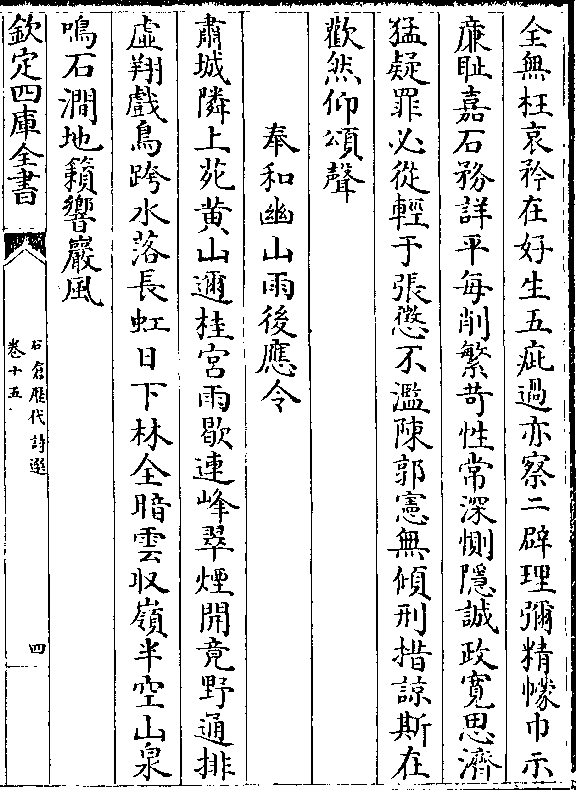 全無枉哀矜在好生五疵過亦察二辟理彌精幪巾示
亷恥嘉石務詳平每削繁苛性常深惻隱誠政寛思濟
猛疑罪必從輕于張懲不濫陳郭憲無傾刑措諒斯在
歡然仰頌聲
奉和幽山雨後應令
肅城隣上苑黄山邇桂宮雨歇連峰翠煙開竟野通排
虚翔戲鳥跨水落長虹日下林全暗雲収嶺半空山泉
鳴石澗地籟響巖風
欽定四庫全書
石倉歴代詩選
卷十五
四